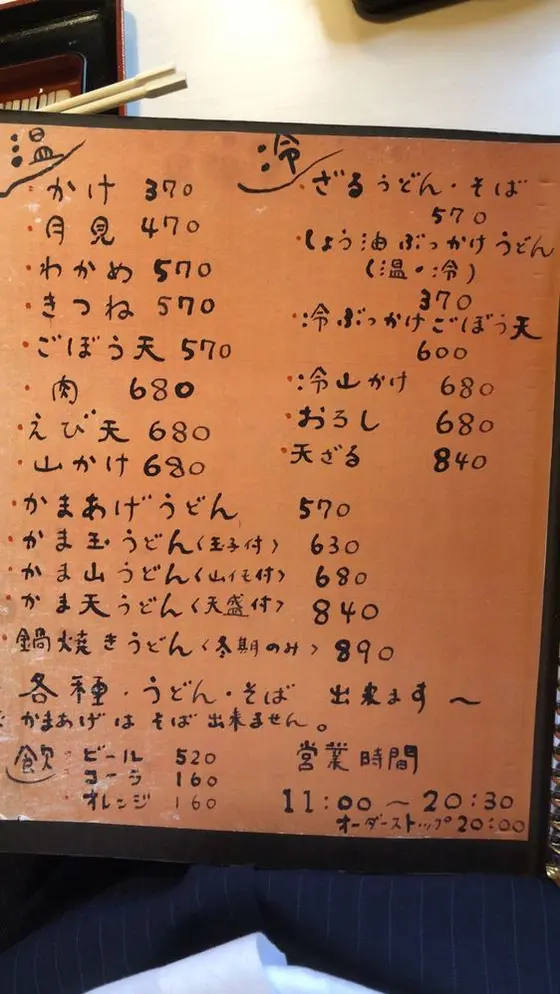 温
・かけ 370
・月見 470
・わかめ 570
・きつね 570
・ごぼう天 570
・肉 680
・えび天 680
・山かけ 680
冷
・ざるうどん・そば
570
・しょう油ぶっかけうどん
(温・冷)
370
・冷ぶっかけごぼう天
600
・冷山かけ 680
・おろし 680
・天ざる 840
・かまあげうどん 570
・かま玉うどん(玉子付) 630
・かま山うどん(山イモ付) 680
・かま天うどん(天盛付) 840
・鍋焼きうどん(冬期のみ) 890
各種・うどん・そば 出来ます〜
かまあげはそば出来ません。
飲
・ビール 520
・コーラ 160
・オレンジ 160
営業時間
11:00〜20:30
オーダーストップ20:00